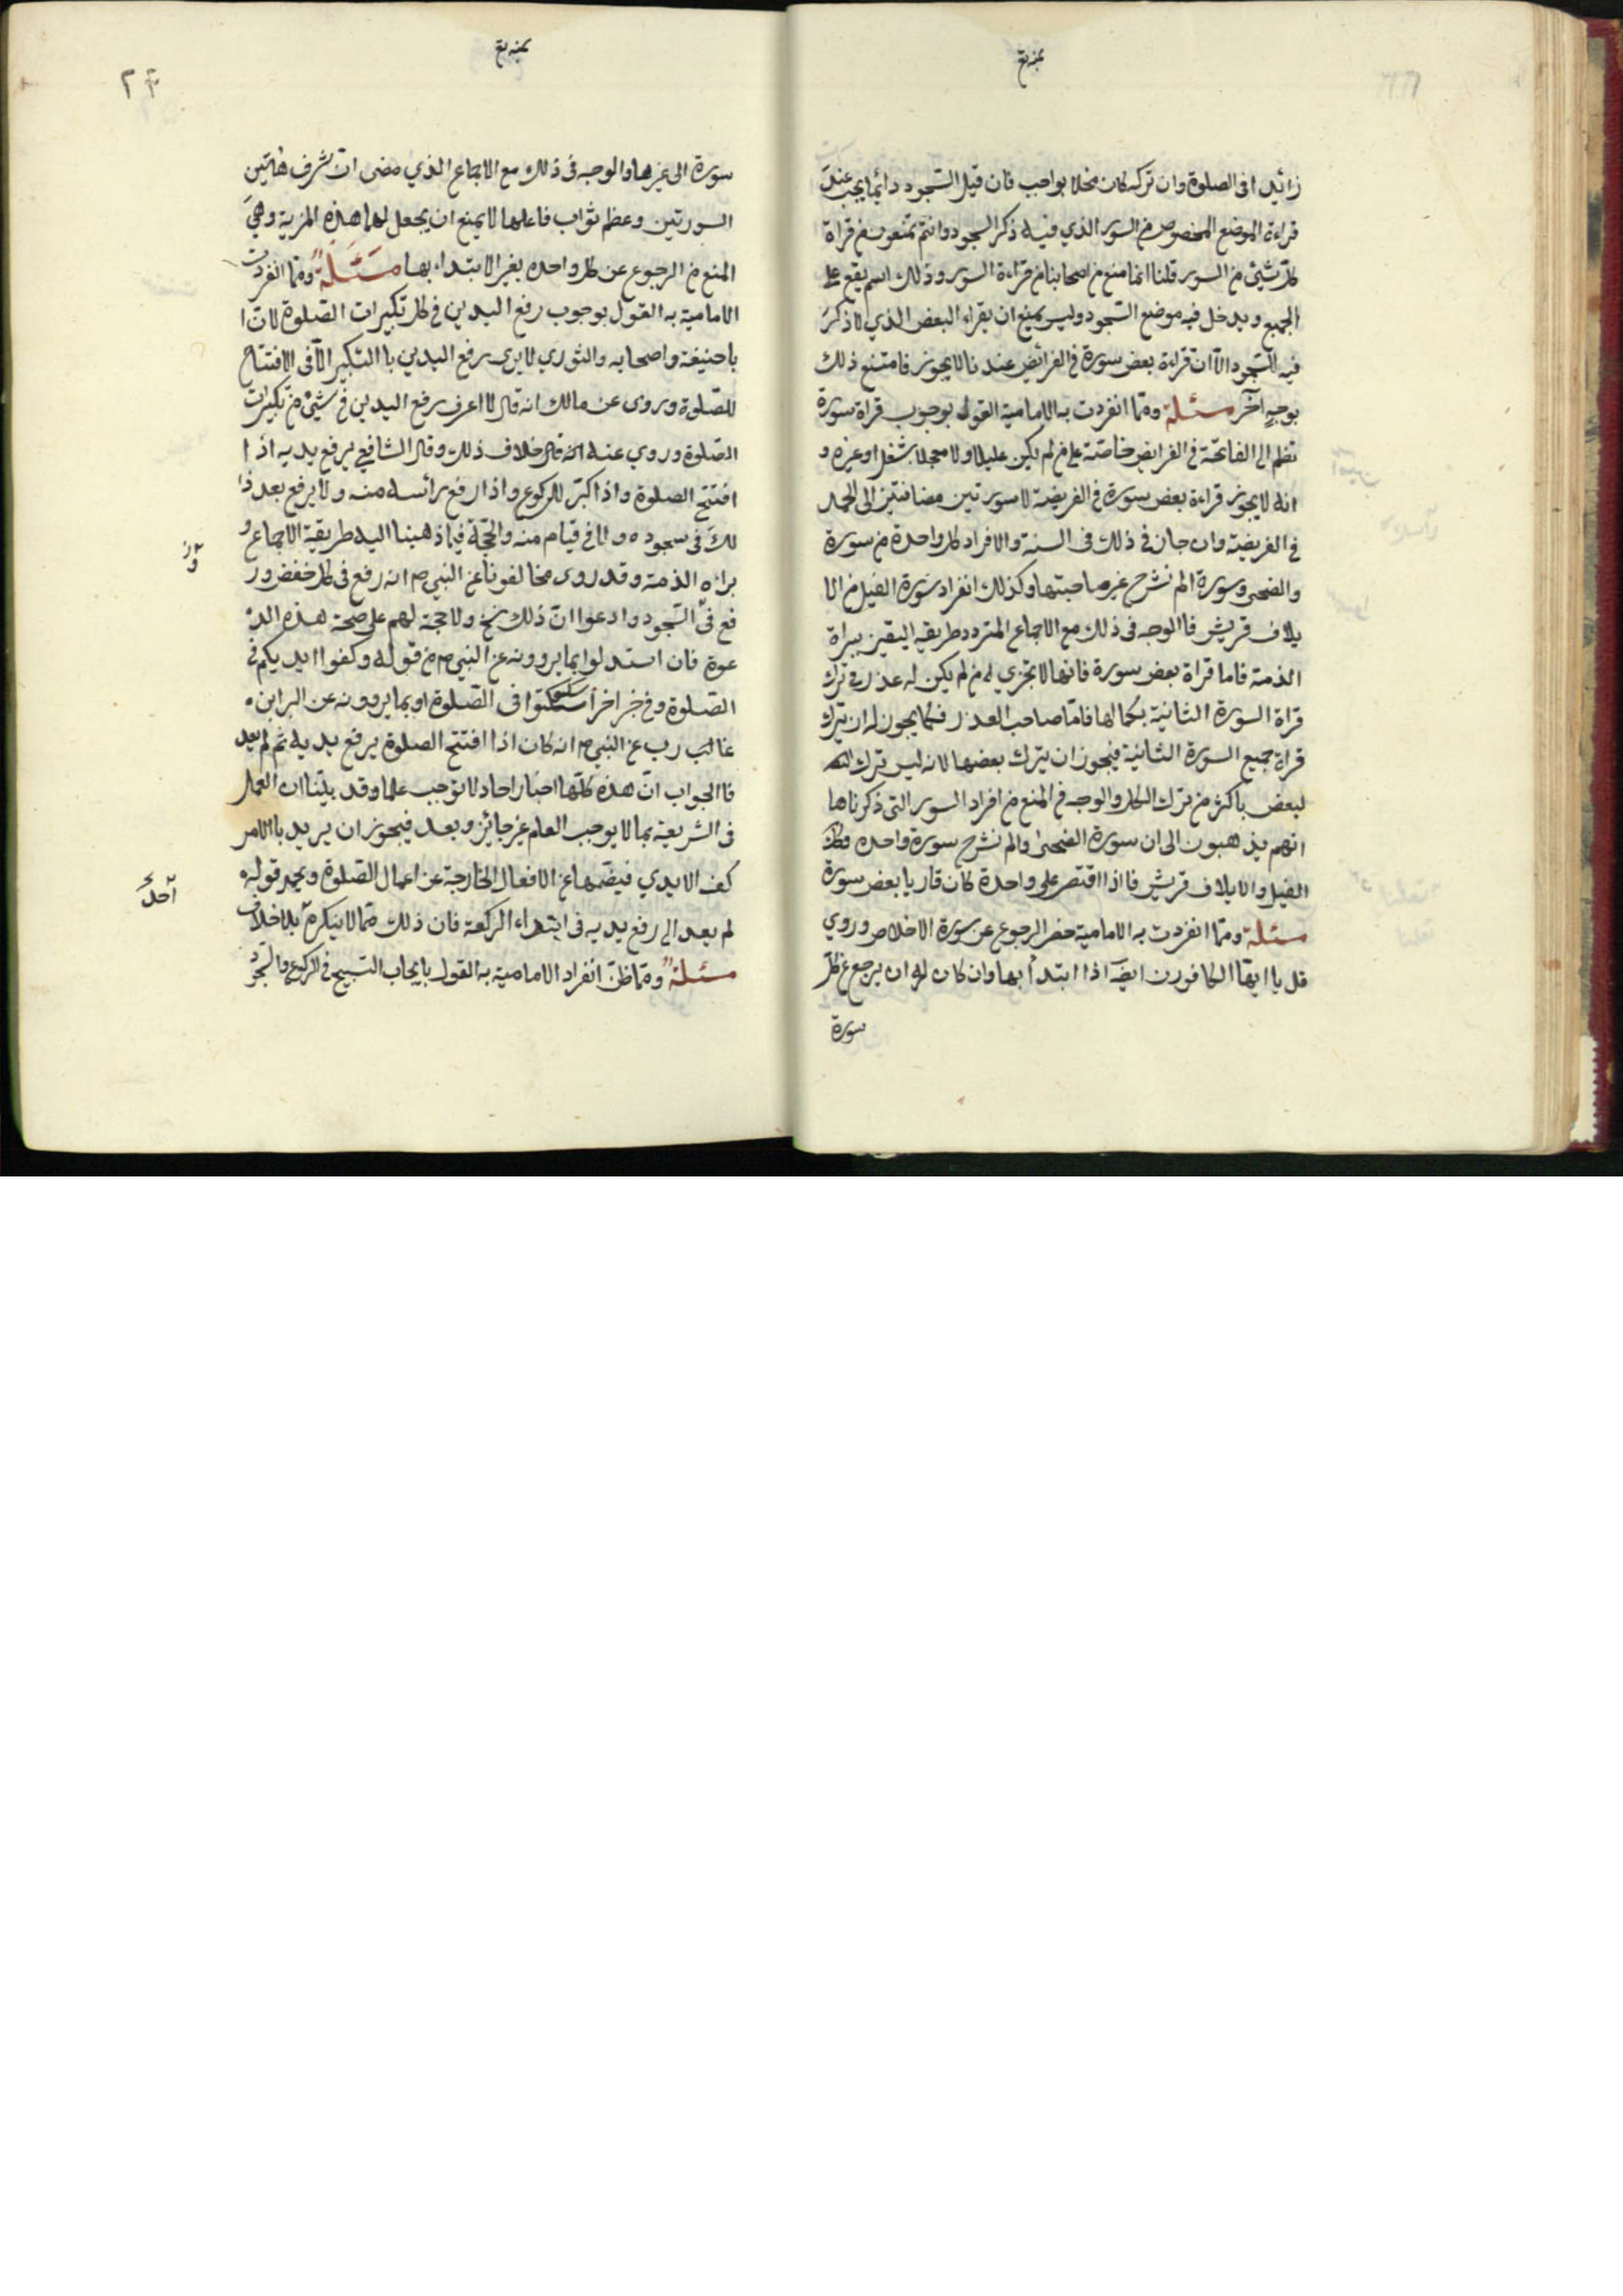 زائدا فى الصلوة وان تركه كان مخلا بواجب فان قيل السجود دائما يجب عند
قراءة الموضع المخصوص من السور الذي فيه ذكر السجود وانتم تمنعون من قراة
كل شيئ من السور قلنا انما منع من اصحابنا من قراءة السور وذلك اسم يقع على
الجميع ويدخل فيه موضع السجود وليس يمنع ان يقراء البعض الذي لا ذكر
فيه للسجود الا ان قراءة بعض سورة فى الفرائض عندنا لا يجوز فامتنع ذلك
بوجه آخر مسئلة ومما انفردت به الامامية القول بوجوب قراة سورة
تظم الى الفاتحة فى الفرايض خاصة على من لم يكن عليلا ولا معجلا بشغل او غيره و
انه لا يجوز قراءة بعض سورة فى الفريضة لا سورتين مضافتين الى الحمد
فى الفريضة وان جاز فى ذلك فى السنة والافراد كل واحدة من سورة
والضحى وسورة الم نشرح غير صاحبتها وكذلك انفراد سورة الفيل من الا
يلاف قريش فالوجه فى ذلك مع الاجماع المتردد طريقه اليقين ببراة
الذمة فاما قراة بعض سورة فانها لا تجزي له من لم يكن له عذر فى ترك
قراة السورة الثانية بكمالها فاما صاحب العذر فكما يجوز له ان يترك
قراة جميع السورة الثانية فيجوز ان يترك بعضها لانه ليس ترك
لبعض باكثر من ترك الكل والوجه فى المنع من افراد السور التى ذكرناها
انهم يذهبون الى ان سورة الضحى والم نشرح سورة واحده وكك
الفيل والايلاف قريش فاذا اقتصر على واحدة كان قاريا بعض سورة
مسئلة ومما انفردت به الامامية حضر الرجوع عن سورة الاخلاص وروي
قل يا ايها الكافورن ايضا اذا ابتدأ بها وان كان له ان يرجع عن كل
سورة
سورة الى غيرها والوجه فى ذلك مع الاجماع الذي مضى ان شرف هاتين
السورتين وعظم ثواب فاعلها لا يمنع ان يجعل لهما هذه المزية وهي
المنع من الرجوع عن كل واحده بغير الابتداء بها مسئلة ومما انفردت
الامامية به القول بوجوب رفع اليدين فى كل تكبيرات الصلوة لان ا
با حنيفة واصحابه والثوري لا يرى رفع اليدين با التكبير الا فى الافتتاح
للصلوة وروى عن مالك انه قال لا اعرف رفع اليدين فى شيئ من تكبيرات
الصلوة وروي عنه انه قال خلاف ذلك وقال الشافعي يرفع يديه اذا
افتتح الصلوة واذا كبر للركوع واذا رفع رائسه منه ولا يرفع بعد ذا
لك فى سجوده ولا فى قيام منه والحجة فيما ذهبنا اليه طريقة الاجماع و
براه الذمة وقد روى مخالفونا عن النبي ص انه رفع فى كل خفض ور
فع فى السجود وادعوا ان ذلك نسخ ولا حجة لهم على صحة هذه الد
عوة فان استدلوا بما يروونه عن النبي ص من قوله وكفوا ايديكم فى
الصلوة وفى خبر اخر اسكتوا فى الصلوة او بما يروونه عن البرا بن
غالب رب عن النبي ص انه كان اذا افتتح الصلوة يرفع يديه ثم لم يعد
فا الجواب ان هذه كلها اخبار احاد لا توجب علما وقد بينا ان العمل
فى الشريعة بما لا يوجب العلم غير جائز وبعد فيجوز ان يريد با الامر
كف الايدي فيضمها عن الافعال الخارجة عن اعمال الصلوة ويحمل قوله
لم يعد الى رفع يديه فى ابتداء الركعة فان ذلك مما لا ينكره بلا خلاف
مسئلة ومما ظن انفراد الامامية به القول بايجاب التسبيح فى الركوع والسجود